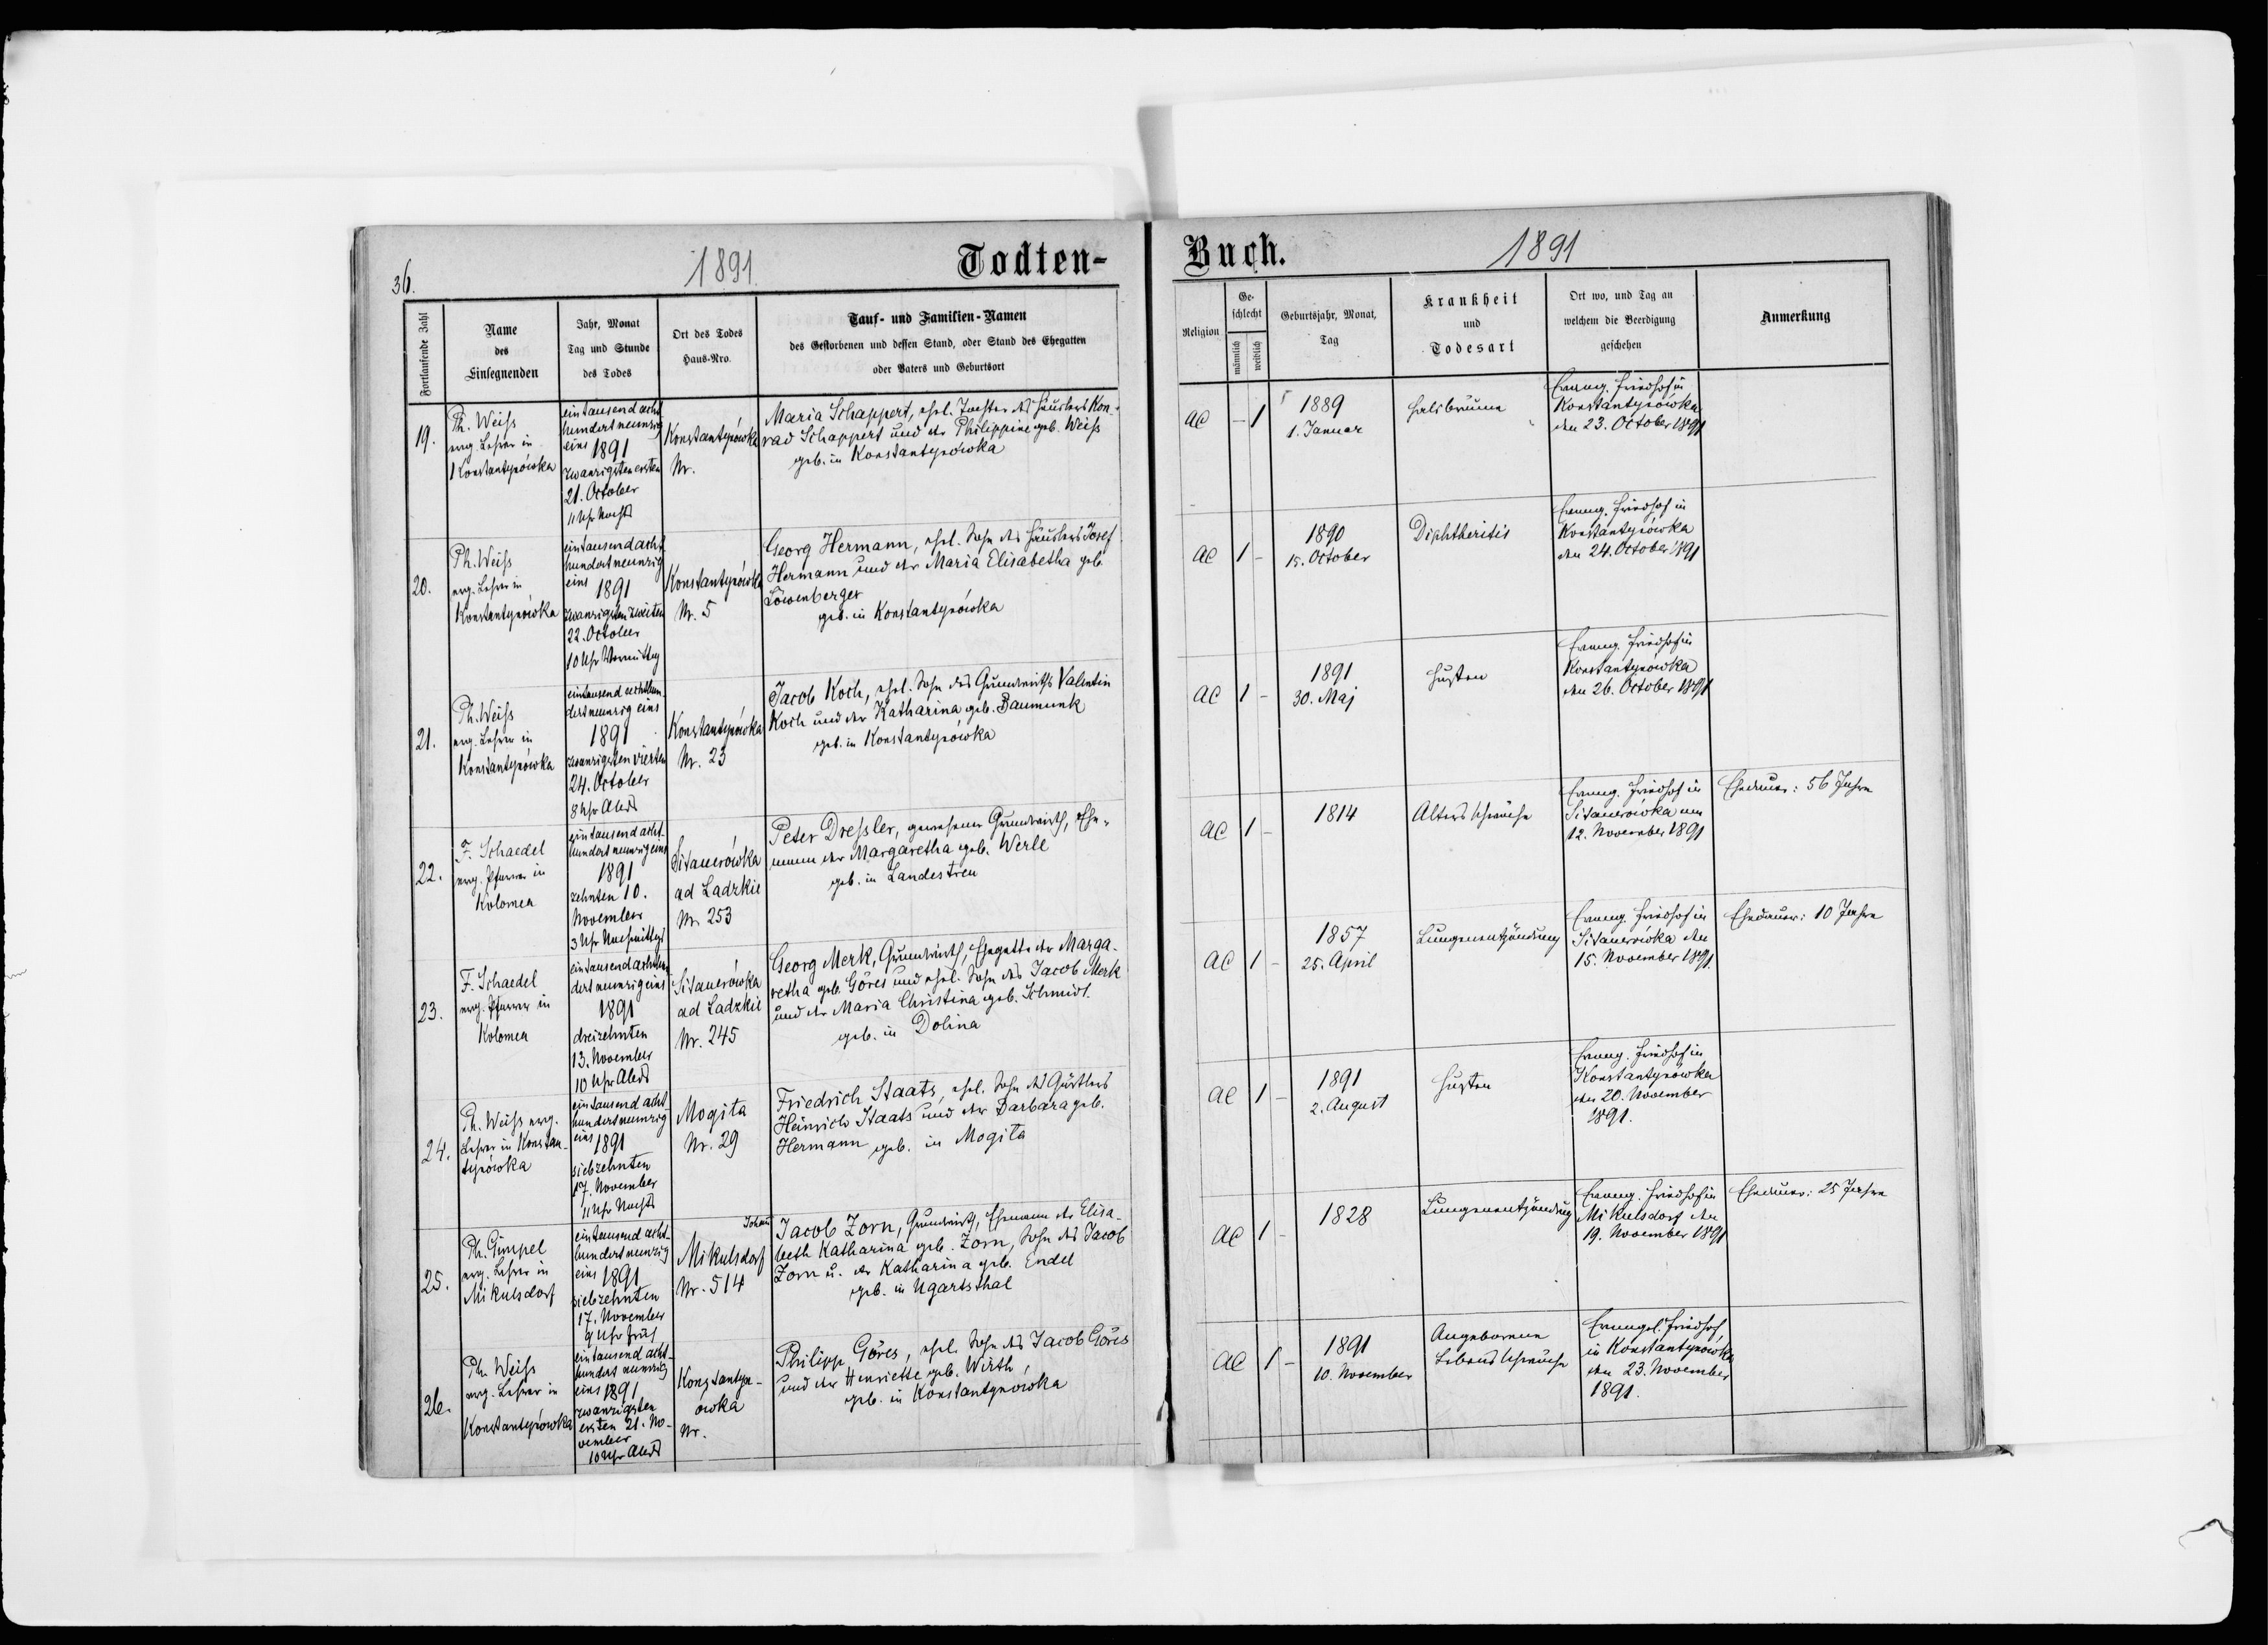 36.
1891
Todten-
Fortlaufende Zahl
Name
des
Einsegnenden
Jahr, Monat
Tag und Stunde
des Todes
Ort des Todes
Haus-Nro.
Tauf- und Familien-Namen
des Gestorbenen und dessen Stand, oder Stand des Ehegatten
oder Vaters und Geburtsort
19.
Ph. Weiß
evg. Lehrer in
Konstantynówka
eintausend acht
hundert neunzig
eins 1891
zwanzigsten ersten
21. October
11 Uhr Nachts
Konstantynówka
Nr.
Maria Schappert, ehel. Tochter des Häuslers Kon-
rad Schappert und der Philippine geb. Weiß
geb. in Konstantynówka
20.
Ph. Weiß
evg. Lehrer in
Konstantynówka
eintausend acht
hundert neunzig
eins 1891
zwanzigsten zweiten
22. October
10 Uhr Vormittag
Konstantynówka
Nr. 5
Georg Hermann, ehel. Sohn des Häuslers Josef
Hermann und der Maria Elisabetha geb.
Löwenberger
geb. in Konstantynówka
21.
Ph. Weiß
evg. Lehrer in
Konstantynówka
eintausend achthun
dert neunzig eins
1891
zwanzigsten vierten
24. October
8 Uhr Abds
Konstantynówka
Nr. 23
Jacob Koch, ehel. Sohn des Grundwirths Valentin
Koch und der Katharina geb. Baumunk
geb. in Konstantynówka
22.
F. Schaedel
evg. Pfarrer in
Kolomea
eintausend acht-
hundert neunzig eins
1891
zehnten 10.
November
3 Uhr Nachmittags
Sitauerówka
ad Ladzkie
Nr. 253
Peter Dreßler, gewesener Grundwirth, Ehe-
mann der Margaretha geb. Werle
geb. in Landestreu
23.
F. Schaedel
evg. Pfarrer in
Kolomea
eintausend achthun
dert neunzig eins
1891
dreizehnten
13. November
10 Uhr Abds
Sitauerówka
ad Ladzkie
Nr. 245
Georg Merk, Grundwirth, Ehegatte der Marga-
retha geb. Göres und ehel. Sohn des Jacob Merk
und der Maria Christina geb. Schmidt.
geb. in Dolina
24.
Ph. Weiß evg.
Lehrer in Konstan-
tynówka
eintausend acht
hundert neunzig
eins 1891
siebzehnten
17. November
11 Uhr Nachts
Mogita
Nr. 29
Friedrich Staats, ehel. Sohn des Gärtlers
Heinrich Staats und der Barbara geb.
Hermann geb. in Mogita
25.
Ph. Gimpel
evg. Lehrer in
Mikulsdorf
eintausend acht-
hundert neunzig
eins 1891
siebzehnten
17. November
9 Uhr früh
Mikulsdorf
Nr. 514
Johann
Jacob Zorn, Grundwirth, Ehemann der Elisa-
beth Katharina geb. Zorn, Sohn des Jacob
Zorn u. der Katharina geb. Endel
geb. in Ugartsthal
26.
Ph. Weiß
evg. Lehrer in
Konstantynówka
eintausend acht-
hundert neunzig
eins 1891
zwanzigsten
ersten 21. No-
vember
10 Uhr Abds
Konstantyn-
owka
Nr.
Philipp Göres, ehel. Sohn des Jacob Göres
und der Henriette geb. Wirth
geb. in Konstantynówka
Buch.
1891
Religion
Ge-
schlecht
männlich
weiblich
Geburtsjahr, Monat,
Tag
Krankheit
und
Todesart
Ort wo, und Tag an
welchem die Beerdigung
geschehen
Anmerkung
ac - 1
1889
1. Januar
Halsbräune
Evang. Friedhof in
Konstantynówka
den 23. October 1891
ac 1 -
1890
15. October
Diphtheritis
Evang. Friedhof in
Konstantynówka
den 24. October 1891
ac 1 -
1891
30. Maj
Husten
Evang. Friedhof in
Konstantynówka
den 26. October 1891
ac 1 -
1814
Altersschwäche
Evang. Friedhof in
Sitauerówka am
12. November 1891
Ehedauer: 56 Jahre
ac 1 -
1857
25. April
Lungenentzündung
Evang. Friedhof in
Sitauerówka den
15. November 1891.
Ehedauer: 10 Jahre
ac 1 -
1891
2. August
Husten
Evang. Friedhof in
Konstantynówka
den 20. November
1891.
ac 1 -
1828
Lungenentzündung
Evang. Friedhof in
Mikulsdorf den
19. November 1891
Ehedauer: 25 Jahre
ac 1 -
1891
10. November
Angeborene
Lebensschwäche
Evangel. Friedhof
in Konstantynówka
den 23. November
1891.